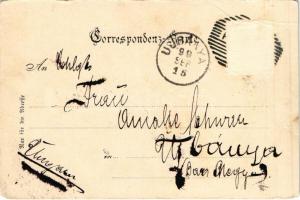 Correspondenz-Karte
UJBÁNYA
99
SEP
15
An
Frau
Amalie
in Ujbánya
(Bars Megye)
Nur für die Adresse
Ungarn